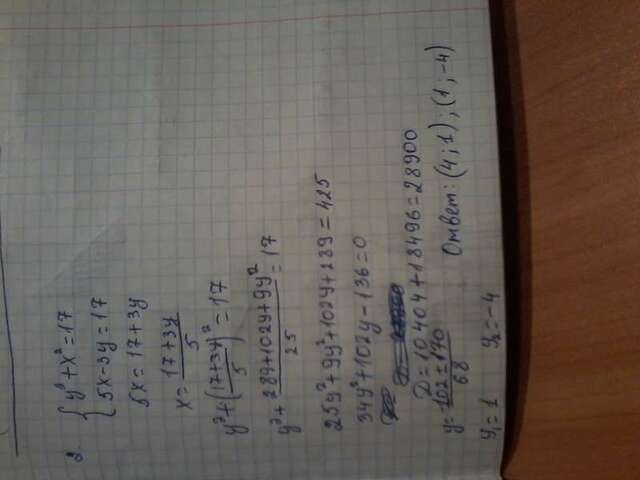 2. { y²+x²=17
5x-3y=17
5x=17+3y
x=17+3y/5
y²+(17+3y/5)²=17
y²+289+102y+9y²/25=17
25y²+9y²+102y+289=425
34y²+102y-136=0
D=10404+18496=28900
y=-102±170/68
y₁=1 y₂=-4
Ответ: (4;1);(1;-4)